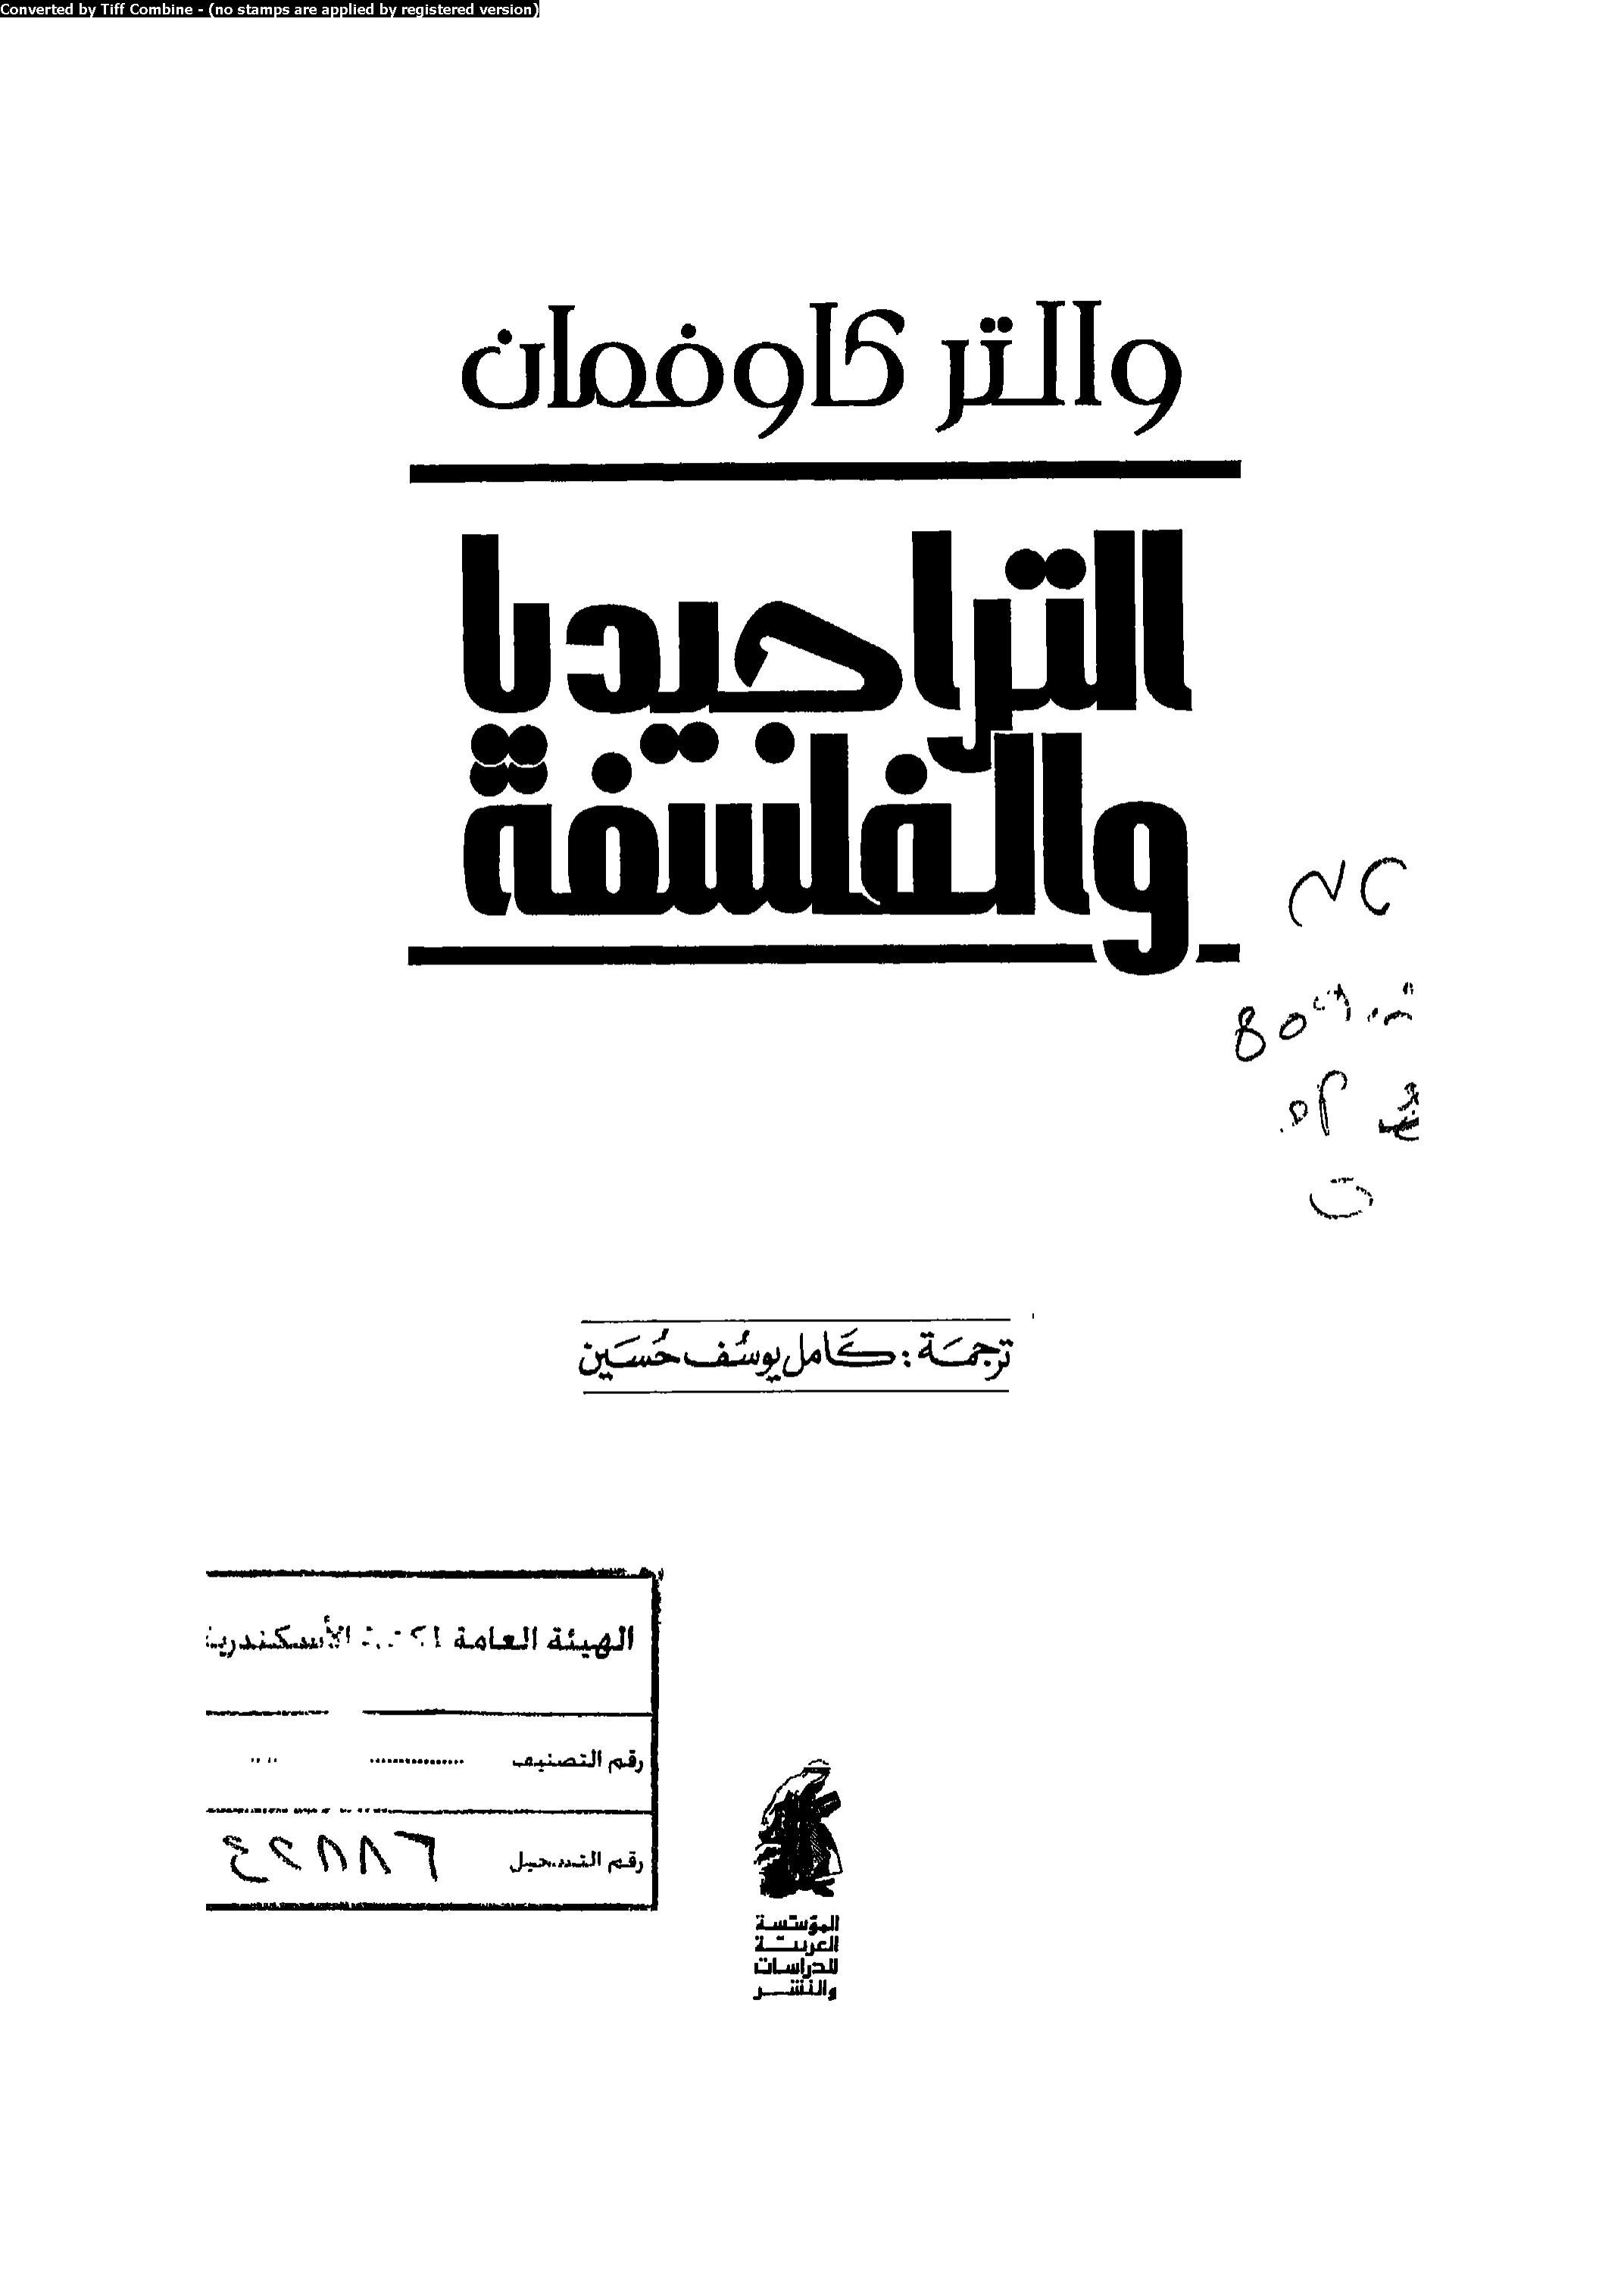 Converted by Tiff Combine - (no stamps are applied by registered version)
والتر كاوفمان
التراجيديا
والفلسفة
ترجمة : كامل يوسف حسين
الهيئة العامة
رقم التصنيف
رقم التسجيل
المؤسسة
العربية
للدراسات
والنشر